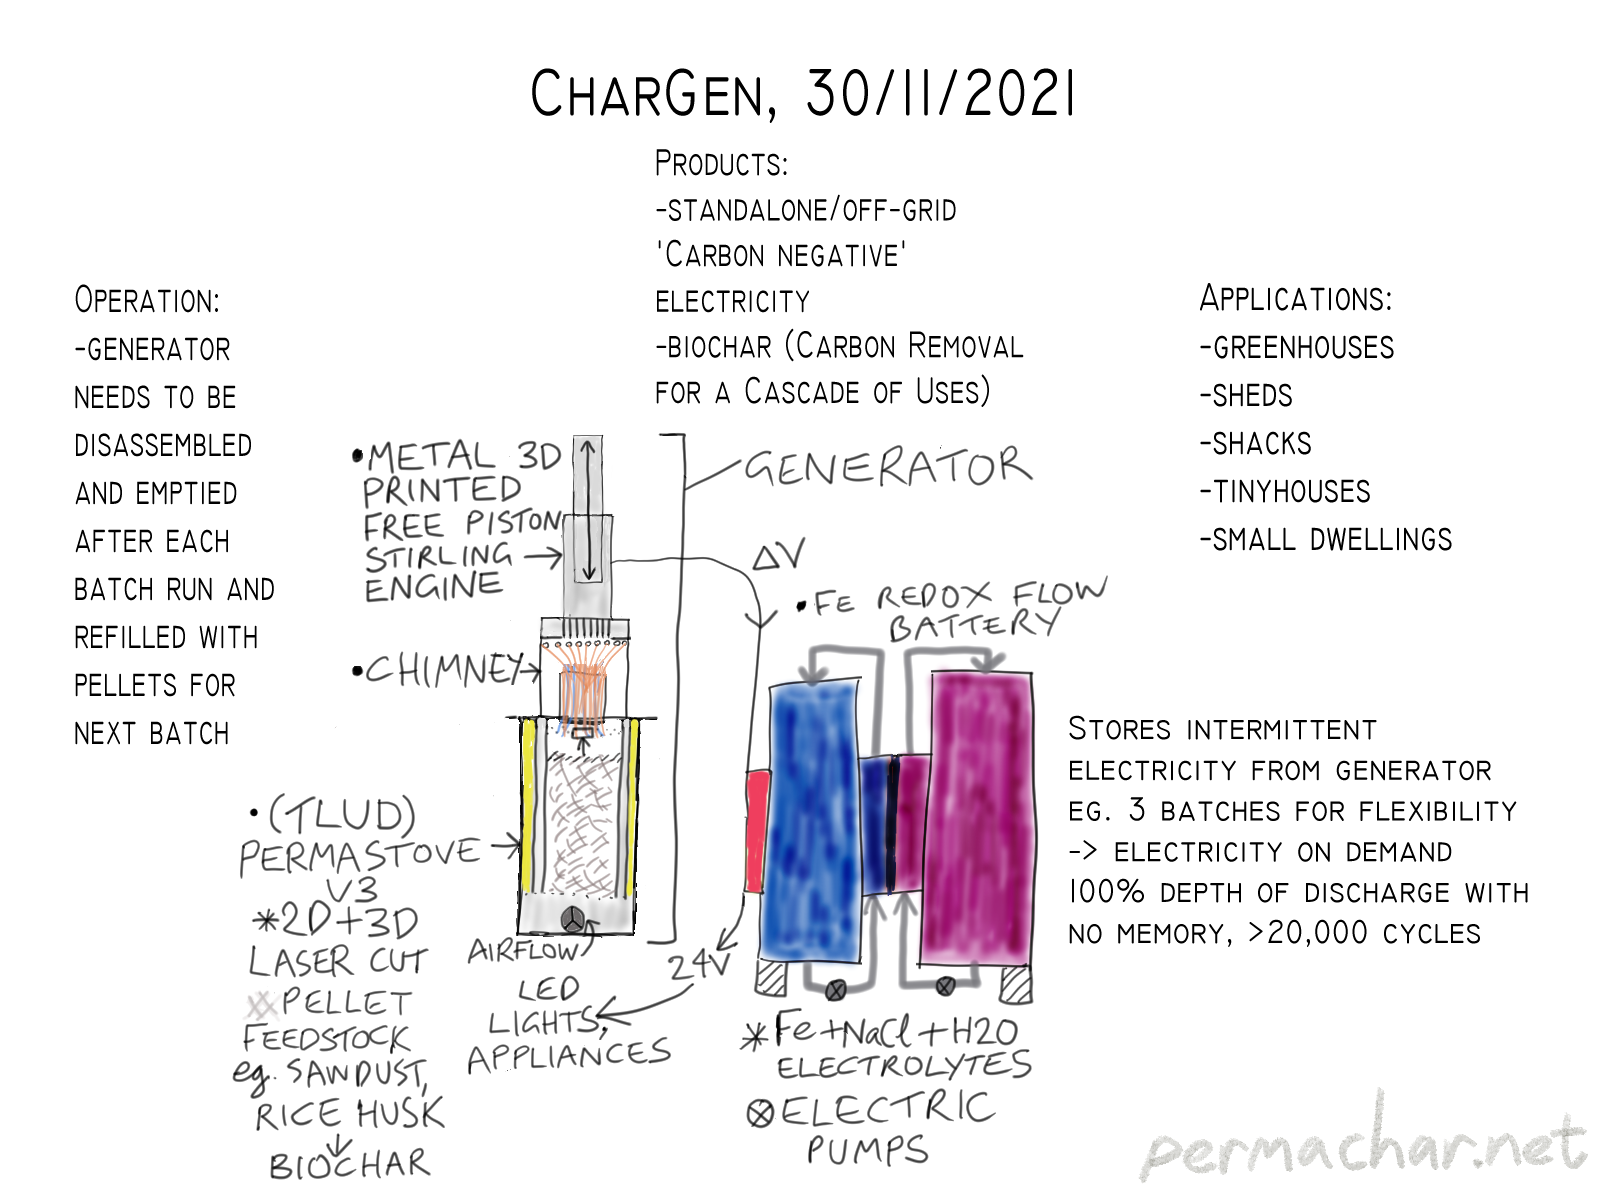 CharGen, 30/11/2021
Products:
-standalone/off-grid
'Carbon negative'
electricity
-biochar (Carbon Removal
for a Cascade of Uses)
Operation:
-generator
needs to be
disassembled
and emptied
after each
batch run and
refilled with
pellets for
next batch
Applications:
-greenhouses
-sheds
-shacks
-tinyhouses
-small dwellings
•METAL 3D
PRINTED
FREE PISTON
STIRLING
ENGINE
GENERATOR
ΔV
•CHIMNEY
•Fe REDOX FLOW
BATTERY
Stores intermittent
electricity from generator
eg. 3 batches for flexibility
-> electricity on demand
100% depth of discharge with
no memory, >20,000 cycles
•(TLUD)
PERMASTOVE
V3
*2D+3D
LASER CUT
PELLET
FEEDSTOCK
eg. SAWDUST,
RICE HUSK
BIOCHAR
AIRFLOW
24V
LED
LIGHTS,
APPLIANCES
*Fe+NaCl+H2O
ELECTROLYTES
⊗ELECTRIC
PUMPS
permachar.net